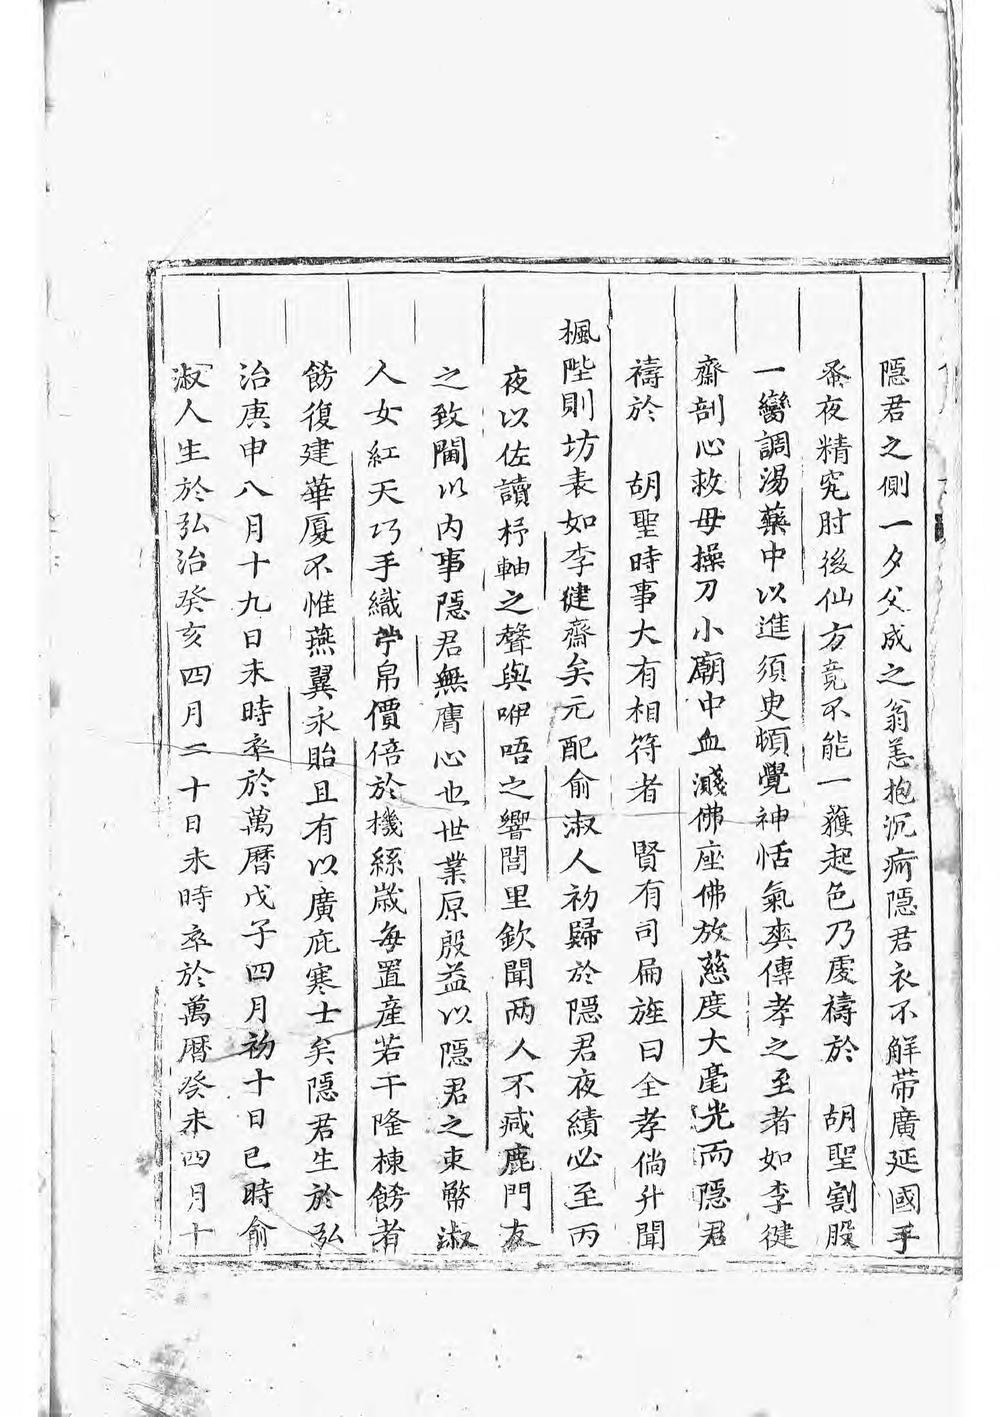 隠君之側一夕父成之翁恙抱沉疴隠君衣不解带廣延國手
蚤夜精究肘後仙方竟不能一穫起色乃虔禱於 胡聖割股
一臠調湯藥中以進須臾頓覺神恬氣爽傳孝之至者如李健
齋剖心救母操刀小廟中血濺佛座佛放慈度大毫光而隠君
禱於 胡聖時事大有相符者 賢有司扁旌曰全孝倘升聞
楓陛則坊表如李健齋矣元配俞淑人初歸於隠君夜績必至丙
夜以佐讀杼軸之聲與咿唔之響閭里欽聞两人不减鹿門友
之致閫以内事隠君無膺心也世業原殷益以隠君之束幣淑
人女紅天巧手織苧帛價倍於機絲歳每置産若干隆棟餝者
餝復建華厦不惟燕翼永貽且有以廣庇寒士矣隠君生於弘
治庚申八月十九日未時卒於萬曆戊子四月初十日巳時俞
淑人生於弘治癸亥四月二十日未時卒於萬曆癸未四月十